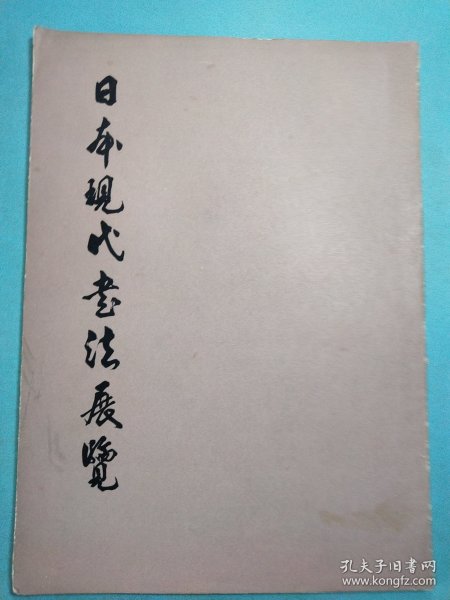 日本現代書法展覽
孔夫子旧书网
www.kongfz.com